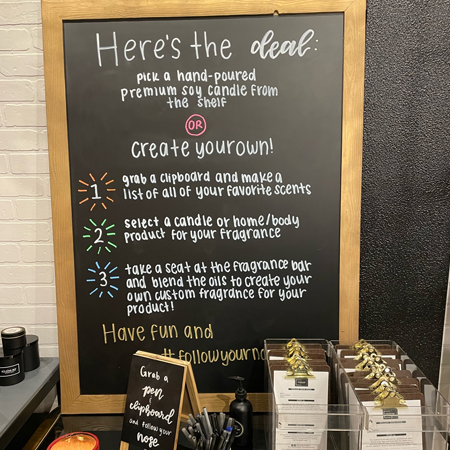 Here's the deal:
pick a hand-poured
premium soy candle from
the shelf
OR
create your own!
1 grab a clipboard and make a
list of all of your favorite scents
2 select a candle or home/body
product for your fragrance
3 take a seat at the fragrance bar
and blend the oils to create your
own custom fragrance for your
product!
Have fun and
Grab a
pen
clipboard
and follow your
nose